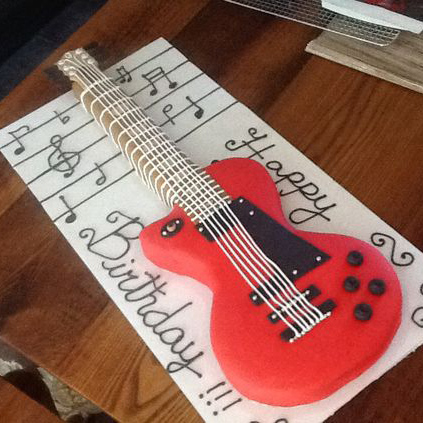 Happy
Birthday !!!